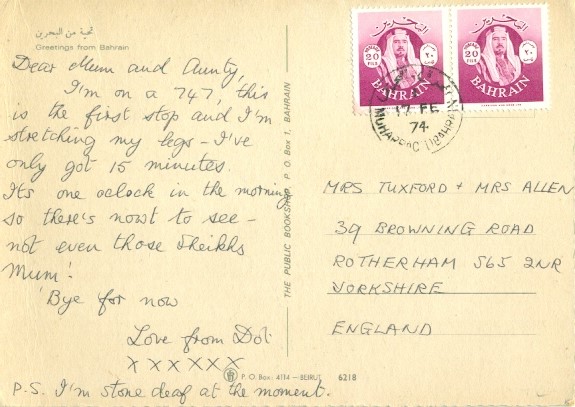 تحية من البحرين
Greetings from Bahrain
Dear Mum and Aunty,
I'm on a 747, this
is the first stop and I'm
stretching my legs - I've
only got 15 minutes.
It's one oclock in the morning
so there's nowt to see -
not even those Sheikhs
Mum!
'Bye for now
Love from Dot
x x x x x x
P.S. I'm stone deaf at the moment.
THE PUBLIC BOOKSHOP, P. O. Box 1, BAHRAIN
P. O. Box: 4114 - BEIRUT 6218
البحرين
20
FILS
٢٠
BAHRAIN
البحرين
20
FILS
٢٠
BAHRAIN
17 FE
74
MUHARRAQ (BAHRAIN)
MRS TUXFORD + MRS ALLEN
39 BROWNING ROAD
ROTHERHAM S65 2NR
YORKSHIRE
ENGLAND